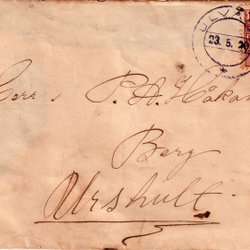 23.5.20
Herr P. A. Håkan
Berg
Urshult.